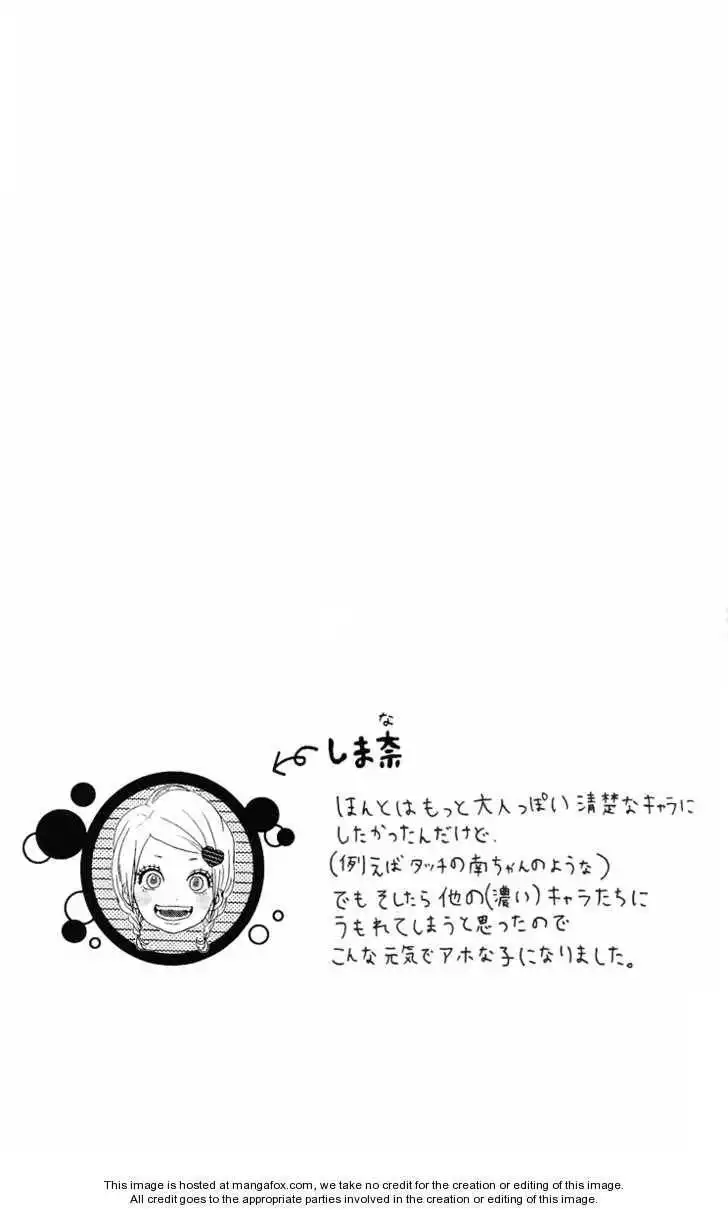 な
しま奈
ほんとはもっと大人っぽい清楚なキャラに
したかったんだけど、
(例えばタッチの南ちゃんのような)
でもそしたら他の(濃い)キャラたちに
うもれてしまうと思ったので
こんな元気でアホな子になりました。
This image is hosted at mangafox.com, we take no credit for the creation or editing of this image.
All credit goes to the appropriate parties involved in the creation or editing of this image.